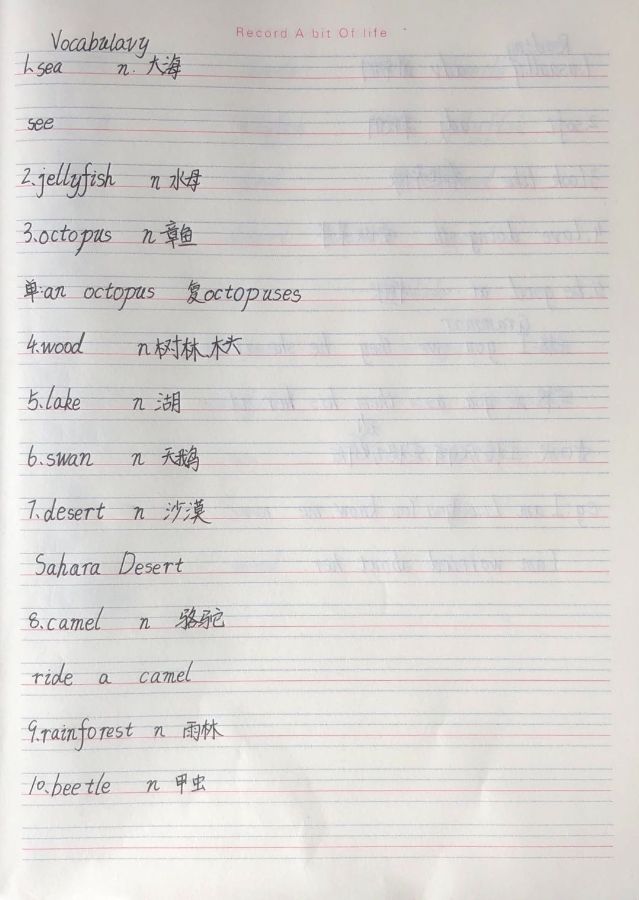 Record A bit Of life
Vocabulary
1.sea n. 大海
see
2.jellyfish n 水母
3.octopus n 章鱼
单:an octopus 复octopuses
4.wood n 树林、木头
5.lake n 湖
6.swan n 天鹅
7.desert n 沙漠
Sahara Desert
8.camel n 骆驼
ride a camel
9.rainforest n 雨林
10.beetle n 甲虫